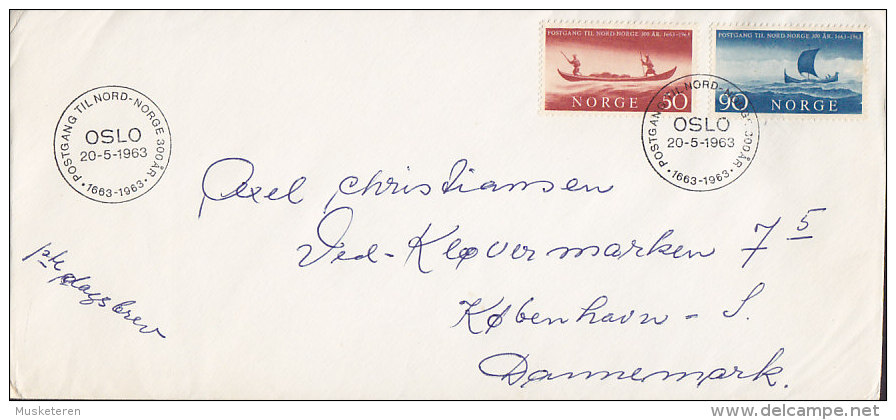 POSTGANG TIL NORD-NORGE 300 ÅR. 1663-1963
NORGE 50
POSTGANG TIL NORD-NORGE 300 ÅR. 1663-1963
90 NORGE
POSTGANG TIL NORD-NORGE 300 ÅR
OSLO
20-5-1963
• 1663-1963 •
POSTGANG TIL NORD-NORGE 300 ÅR
OSLO
20-5-1963
• 1663-1963 •
Axel Christiansen
Ved-Kløvermarken 7 5
København - S.
Dannemark.
1ste dagsbrev
Musketeren
delcampe.net